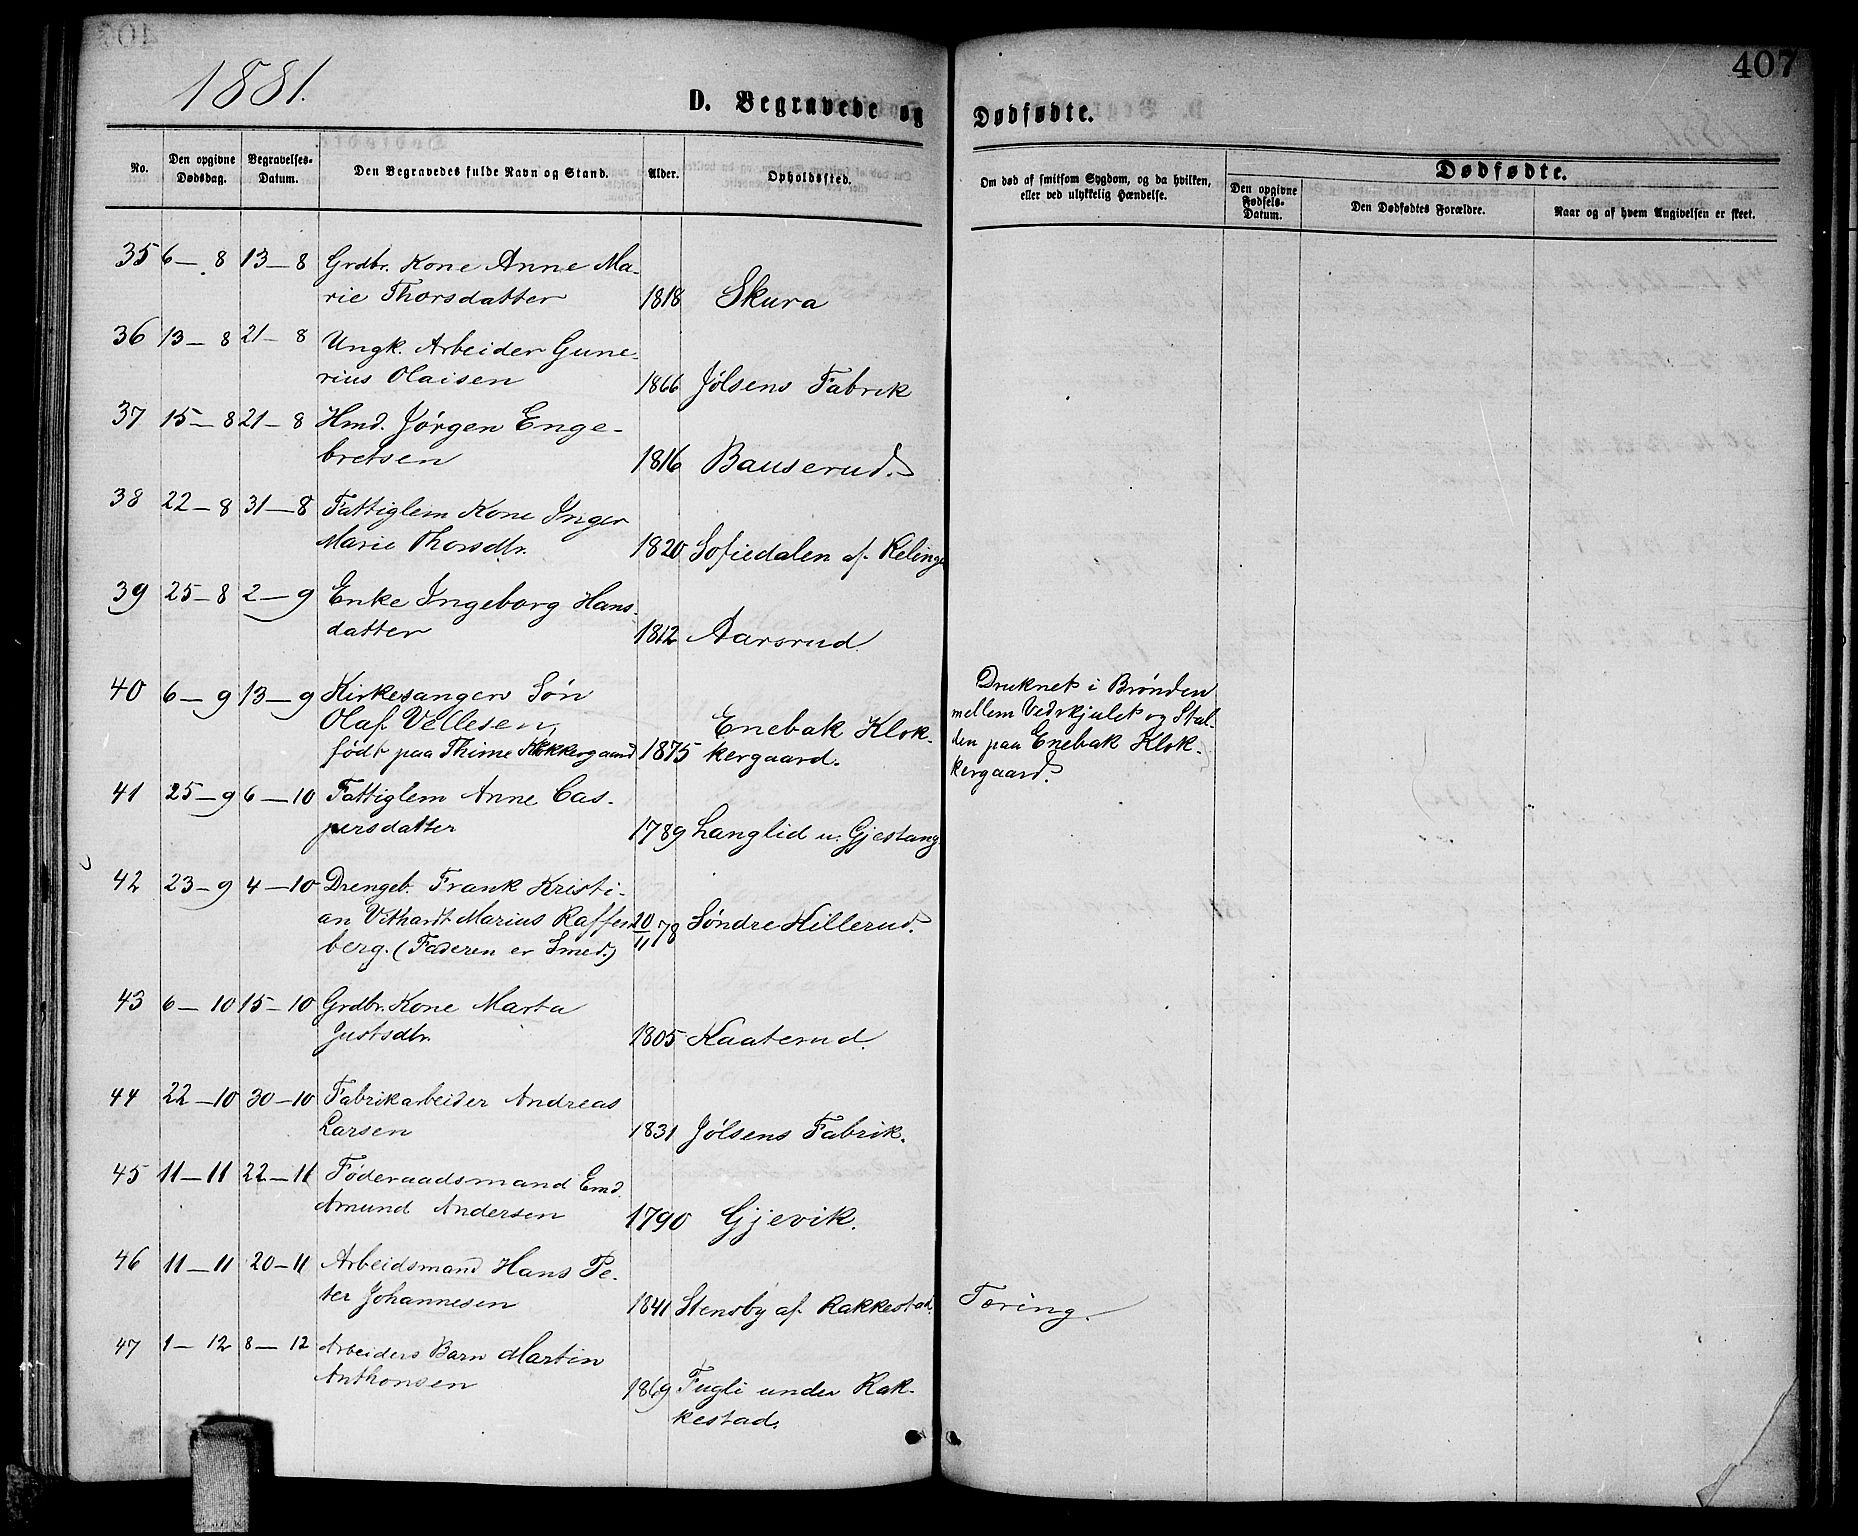 1881.
407
D. Begravede og Dødfødte.
No.
Den opgivne Dødsdag.
Begravelses-Datum.
Den Begravedes fulde Navn og Stand.
Alder.
Opholdssted.
Om død af smitsom Sygdom, og da hvilken,
eller ved ulykkelig Hændelse.
Dødfødte.
Den opgivne Fødsels-Datum.
Den Dødfødtes Forældre.
Naar og af hvem Angivelsen er skeet.
35 6 — 8 13 — 8 Grdbr. Kone Anne Ma-
rie Thorsdatter 1818 Skura
36 13 — 8 21 — 8 Ungk. Arbeider Gune-
rius Olaisen 1866 Jølsens Fabrik
37 15 — 8 21 — 8 Hmd. Jørgen Enge-
bretsen 1816 Bauserud.
38 22 — 8 31 — 8 Fattiglem Kone Inger
Marie Thorsdtr. 1820 Sofiedalen af Kelinge
39 25 — 8 2 — 9 Enke Ingeborg Hans-
datter 1812 Aarsrud.
40 6 — 9 13 — 9 Kirkesangers Søn
Olaf Vellesen,
født paa Thime Klokkergaard 1875 Enebak Klok-
kergaard.
Druknet i Brønden
mellem Vedskjulet og Stal-
den paa Enebak Klok-
kergaard.
41 25 — 9 6 — 10 Fattiglem Anne Cas-
persdatter 1789 Langlid u. Gjestang
42 23 — 9 4 — 10 Drengeb. Frank Kristi-
an Vithardt Marius Raffen
berg. (Faderen er Smed.) 20/11 78 Søndre Hillerud.
43 6 — 10 15 — 10 Grdbr. Kone Marta
Justsdtr. 1805 Kaaterud.
44 22 — 10 30 — 10 Fabrikarbeider Andreas
Larsen 1831 Jølsens Fabrik.
45 11 — 11 22 — 11 Føderaadsmand Emd.
Amund Andersen 1790 Gjevik.
46 11 — 11 20 — 11 Arbeidsmand Hans Pe-
ter Johannesen 1841 Stensby af Rakkestad. Tæring.
47 1 — 12 8 — 12 Arbeiders Barn Martin
Anthonsen 1869 Fugli under Rak-
kestad.